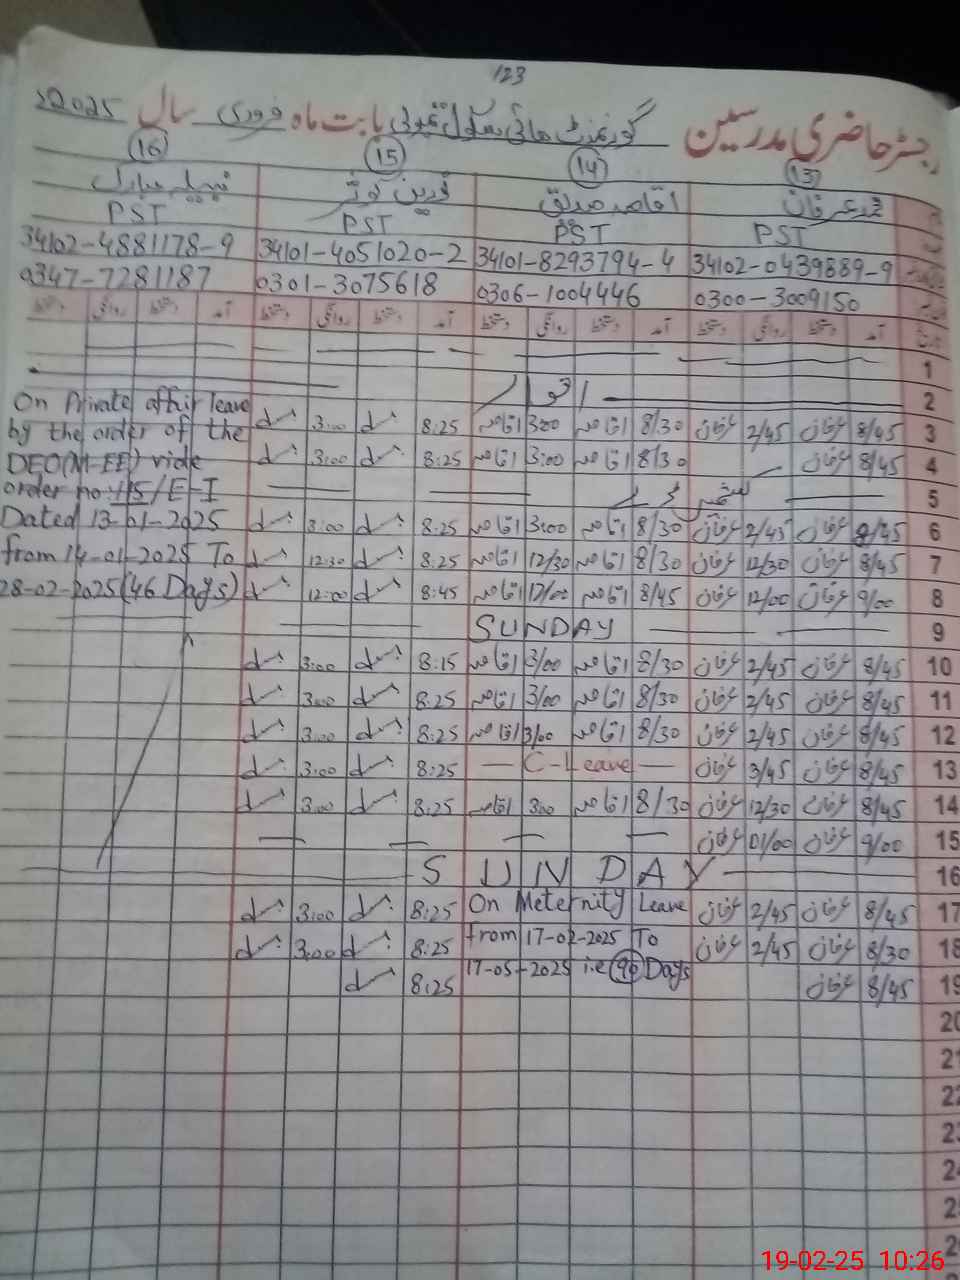 123
رجسٹر حاضری مدرسین گورنمنٹ ہائی سکول بابت ماہ فروری سال 2025
(13) (14) (15) (16)
PST PST PST PST
34102-0439889-9 34101-8293794-4 34101-4051020-2 34102-4881178-9
0300-3009150 0306-1004446 0301-3075618 0347-7281187
آمد دستخط روانگی دستخط آمد دستخط روانگی دستخط آمد دستخط روانگی دستخط آمد دستخط روانگی دستخط
1
2 اتوار
On Private affair leave
by the order of the
DEO(M-EE) vide
order no: 115/E-I
Dated 13-01-2025
from 14-01-2025 To
28-02-2025 (46 Days)
3 8/45 عرفان 2/45 عرفان 8/30 اقاصہ 3:00 اقاصہ 8:25 3:00
4 8/45 عرفان 8/30 اقاصہ 3:00 اقاصہ 8:25 3:00
5 کشمیر ڈے
6 8/45 عرفان 2/45 عرفان 8/30 اقاصہ 3:00 اقاصہ 8:25 3:00
7 8/45 عرفان 12/30 عرفان 8/30 اقاصہ 12/30 اقاصہ 8:25 12:30
8 9/00 عرفان 12/00 عرفان 8/45 اقاصہ 12/00 اقاصہ 8:45 12:00
9 SUNDAY
10 8/45 عرفان 2/45 عرفان 8/30 اقاصہ 3/00 اقاصہ 8:15 3:00
11 8/45 عرفان 2/45 عرفان 8/30 اقاصہ 3/00 اقاصہ 8:25 3:00
12 8/45 عرفان 2/45 عرفان 8/30 اقاصہ 3/00 اقاصہ 8:25 3:00
13 8/45 عرفان 3/45 عرفان C-Leave 8:25 3:00
14 8/45 عرفان 12/30 عرفان 8/30 اقاصہ 3:00 اقاصہ 8:25 3:00
15 9/00 عرفان 01/00 عرفان
16 SUNDAY
17 8/45 عرفان 2/45 عرفان On Meternity Leave 8:25 3:00
18 8/30 عرفان 2/45 عرفان from 17-02-2025 To 8:25 3:00
19 8/45 عرفان 17-05-2025 i.e 90 Days 8:25
20
21
22
23
24
19-02-25 10:26